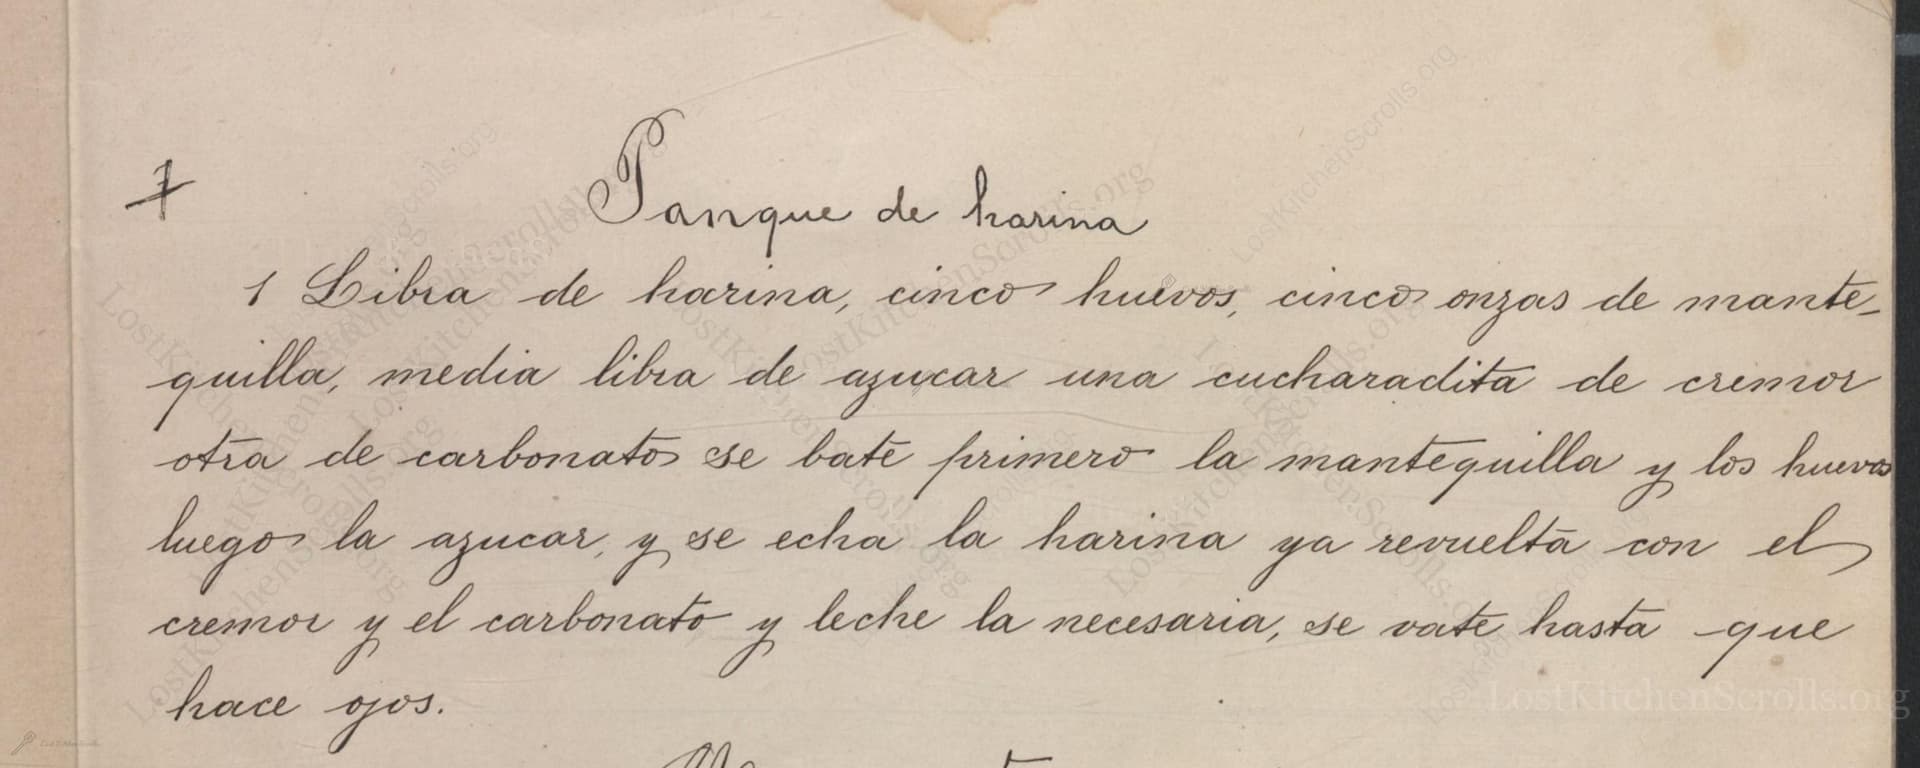 Panque de harina
1 Libra de harina, cinco huevos, cinco onzas de mante-
quilla, media libra de azucar una cucharadita de cremor
otra de carbonato se bate primero la mantequilla y los huevos
luego la azucar, y se echa la harina ya revuelta con el
cremor y el carbonato y leche la necesaria, se vate hasta que
hace ojos.
LostKitchenScrolls.org